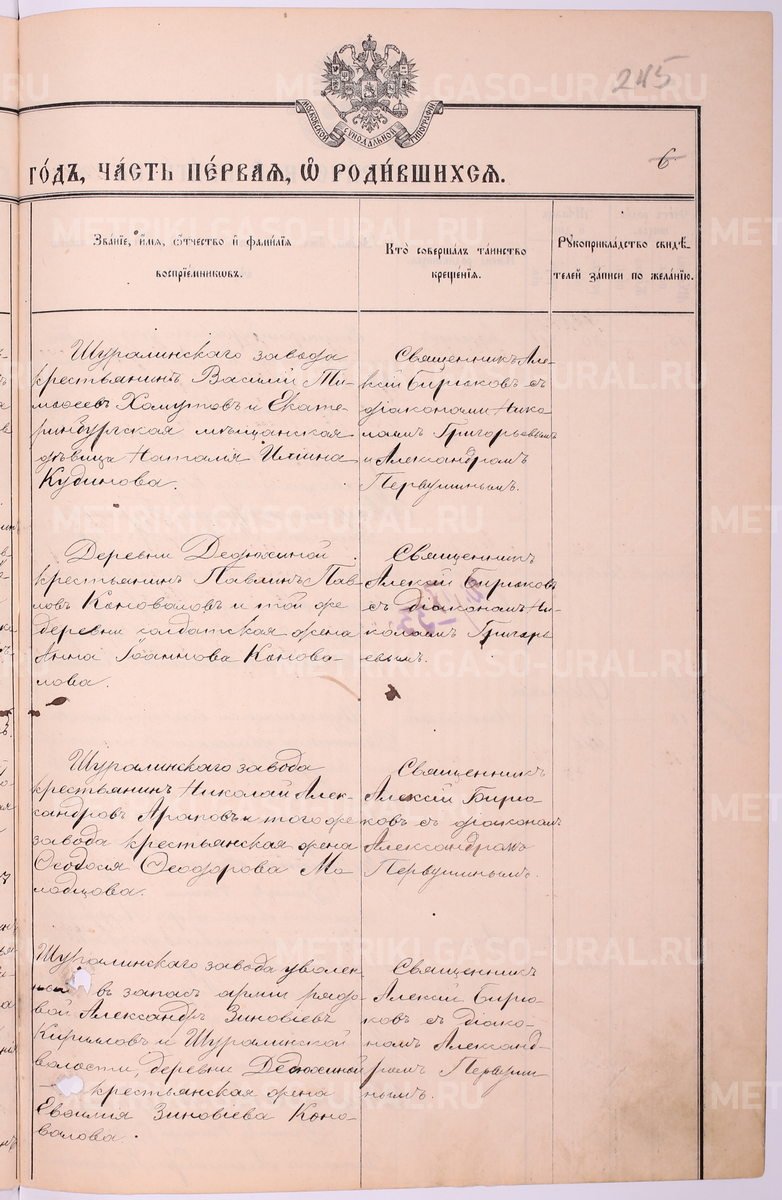 245
МОСКОВСКОЙ СѴНОДАЛЬНОЙ ТИПОГРАФИИ
6
ГО́ДЪ, ЧА́СТЬ ПЕ́РВАЯ, Ѡ҆ РОДИ́ВШИХСЯ.
Зва́нїе, и҆́мя, ѻ҆́тчество и҆ фамилїя
воспрїе́мникѡвъ.
Кто̀ соверша́лъ та́инство
креще́нїя.
Рꙋкоприкла́дство свидѣ́-
телей за́писи по жела́нїю.
Шуралинскаго завода
крестьянинъ Василій Ти-
моѳеевъ Хомутовъ и Екате-
ринбургская мѣщанская
дѣвица Наталія Ильина
Кудинова.
Священникъ Але-
ксій Бирюковъ съ
діаконами Нико
лаемъ Григорьевымъ
и Александромъ
Первушинымъ.
Деревни Дедюхиной
крестьянинъ Павлинъ Пав-
ловъ Коноваловъ и той же
деревни солдатская жена
Анна Іоаннова Конова-
лова.
Священникъ
Алексій Бирюковъ
съ діакономъ Ни-
колаемъ Григорь
евымъ.
Шуралинскаго завода
крестьянинъ Николай Алек-
сандровъ Араповъ и того же
завода крестьянская жена
Ѳеодосія Ѳеодорова Мо-
лодцова.
Священникъ
Алексій Бирю
ковъ съ діакономъ
Александромъ
Первушинымъ.
Шуралинскаго завода уволен-
въ запасъ арміи рядо
вой Александръ Зиновіевъ
Кирилловъ и Шуралинской
волости, деревни Дедюхиной
крестьянская жена
Евѳимія Зиновіева Коно-
валова.
Священникъ
Алексій Бирю
ковъ съ діако-
номъ Александ-
ромъ Первуши-
нымъ.
METRIKI.GASO-URAL.RU